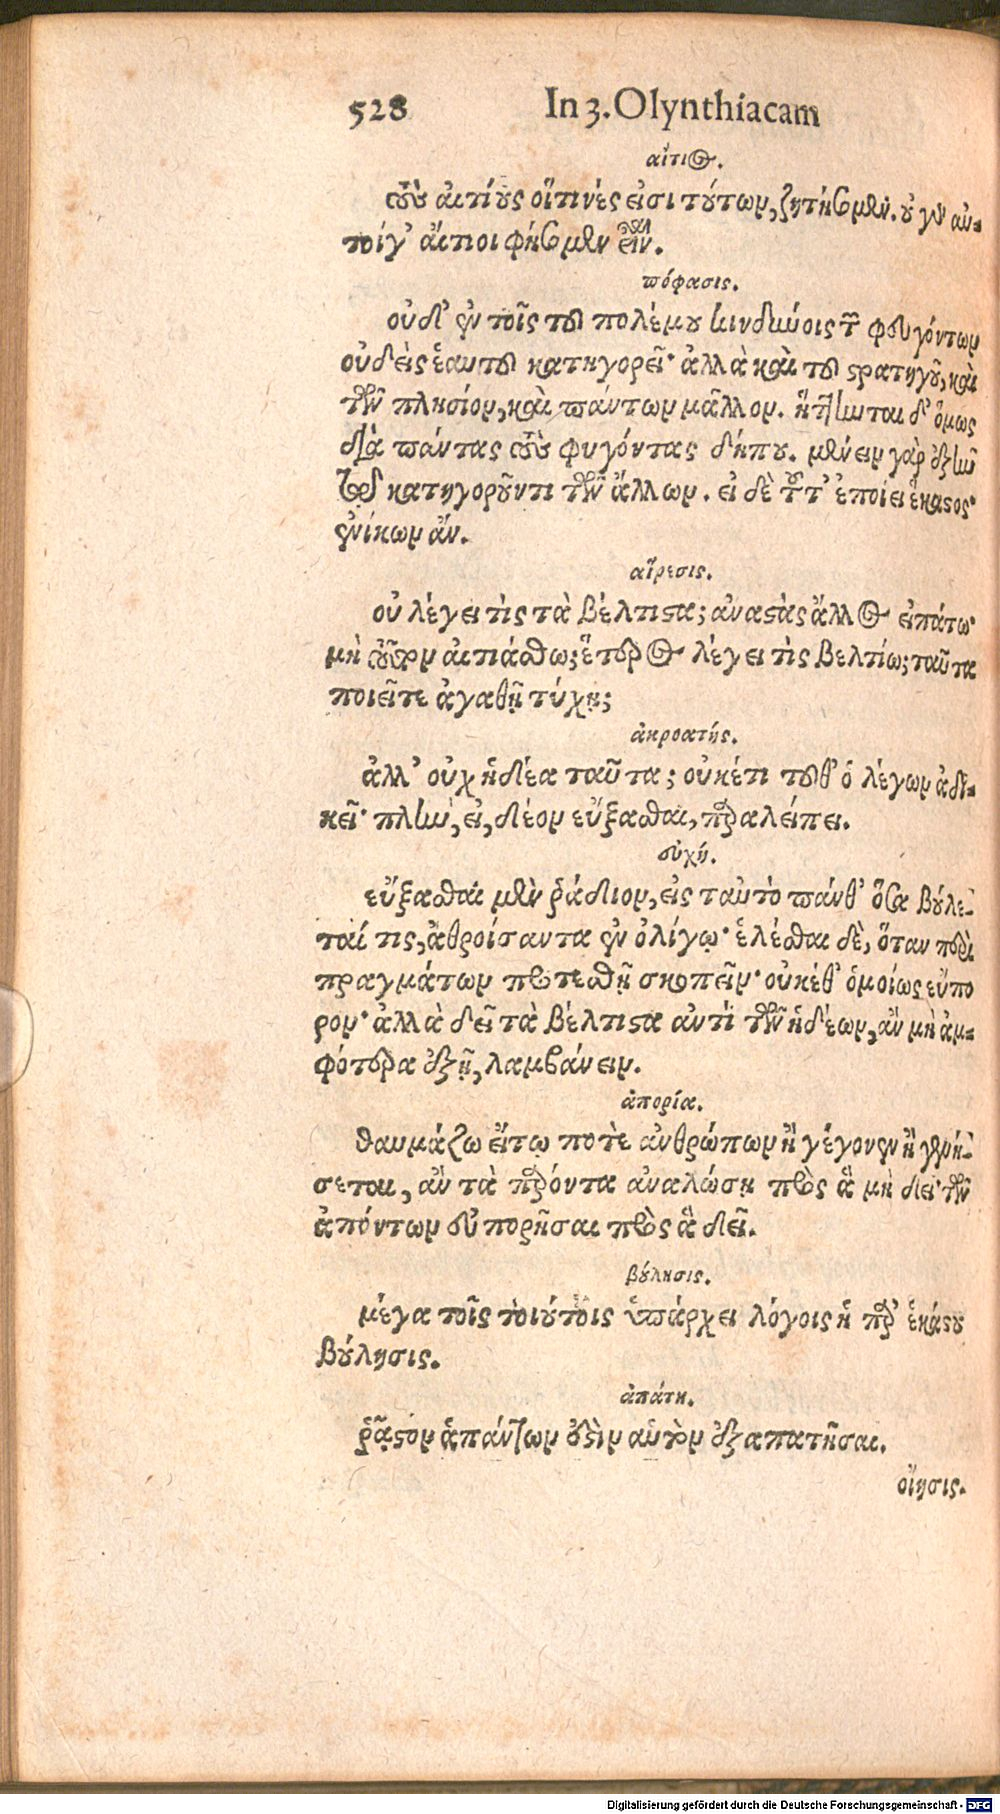 528 In 3. Olynthiacam
αἴτιος.
τοὺς αἰτίους οἵτινές εἰσι τούτων, ζητήσομεν. οὐ γὰρ αὐ-
τοί γ' αἴτιοι φήσομεν εἶναι.
πρόφασις.
οὐδ' ἐν τοῖς τοῦ πολέμου κινδύνοις τῶν φευγόντων
οὐδεὶς ἑαυτοῦ κατηγορεῖ· ἀλλὰ καὶ τοῦ στρατηγοῦ, καὶ
τῶν πλησίον, καὶ πάντων μᾶλλον. ἥττηνται δ' ὅμως
διὰ πάντας τοὺς φυγόντας δήπου. μένειν γὰρ ἐξῆν
τῷ κατηγοροῦντι τῶν ἄλλων. εἰ δὲ τοῦτ' ἐποίει ἕκαστος·
ἐνίκων ἄν.
αἵρεσις.
οὐ λέγει τὶς τὰ βέλτιστα; ἀναστὰς ἄλλος εἰπάτω·
μὴ τοῦτον αἰτιάσθω; ἕτερος λέγει τὶς βελτίω; ταῦτα
ποιεῖτε ἀγαθῇ τύχῃ;
ἀκροατής.
ἀλλ' οὐχ ἡδέα ταῦτα; οὐκέτι τοῦθ' ὁ λέγων ἀδι-
κεῖ· πλὴν, εἰ, δέον εὔξασθαι, παραλείπει.
εὐχή.
εὔξασθαι μὲν ῥάδιον, εἰς ταὐτὸ πάνθ' ὅσα βούλε-
ταί τις, ἀθροίσαντα ἐν ὀλίγῳ· ἑλέσθαι δὲ, ὅταν περὶ
πραγμάτων προτεθῇ σκοπεῖν· οὐκέθ' ὁμοίως εὔπο
ρον· ἀλλὰ δεῖ τὰ βέλτιστα ἀντὶ τῶν ἡδέων, ἂν μὴ ἀμ-
φότερα ἐξῇ, λαμβάνειν.
ἀπορία.
θαυμάζω εἴ τῳ ποτὲ ἀνθρώπων ἢ γέγονεν ἢ γενή-
σεται, ἂν τὰ παρόντα ἀναλώσῃ πρὸς ἃ μὴ δεῖ τῶν
ἀπόντων εὐπορῆσαι πρὸς ἃ δεῖ.
βούλησις.
μέγα τοῖς τοιούτοις ὑπάρχει λόγοις ἡ παρ' ἑκάστου
βούλησις.
ἀπάτη.
ῥᾷστον ἁπάντων ἐστὶν αὑτὸν ἐξαπατῆσαι.
οἴησις.
Digitalisierung gefördert durch die Deutsche Forschungsgemeinschaft - DFG